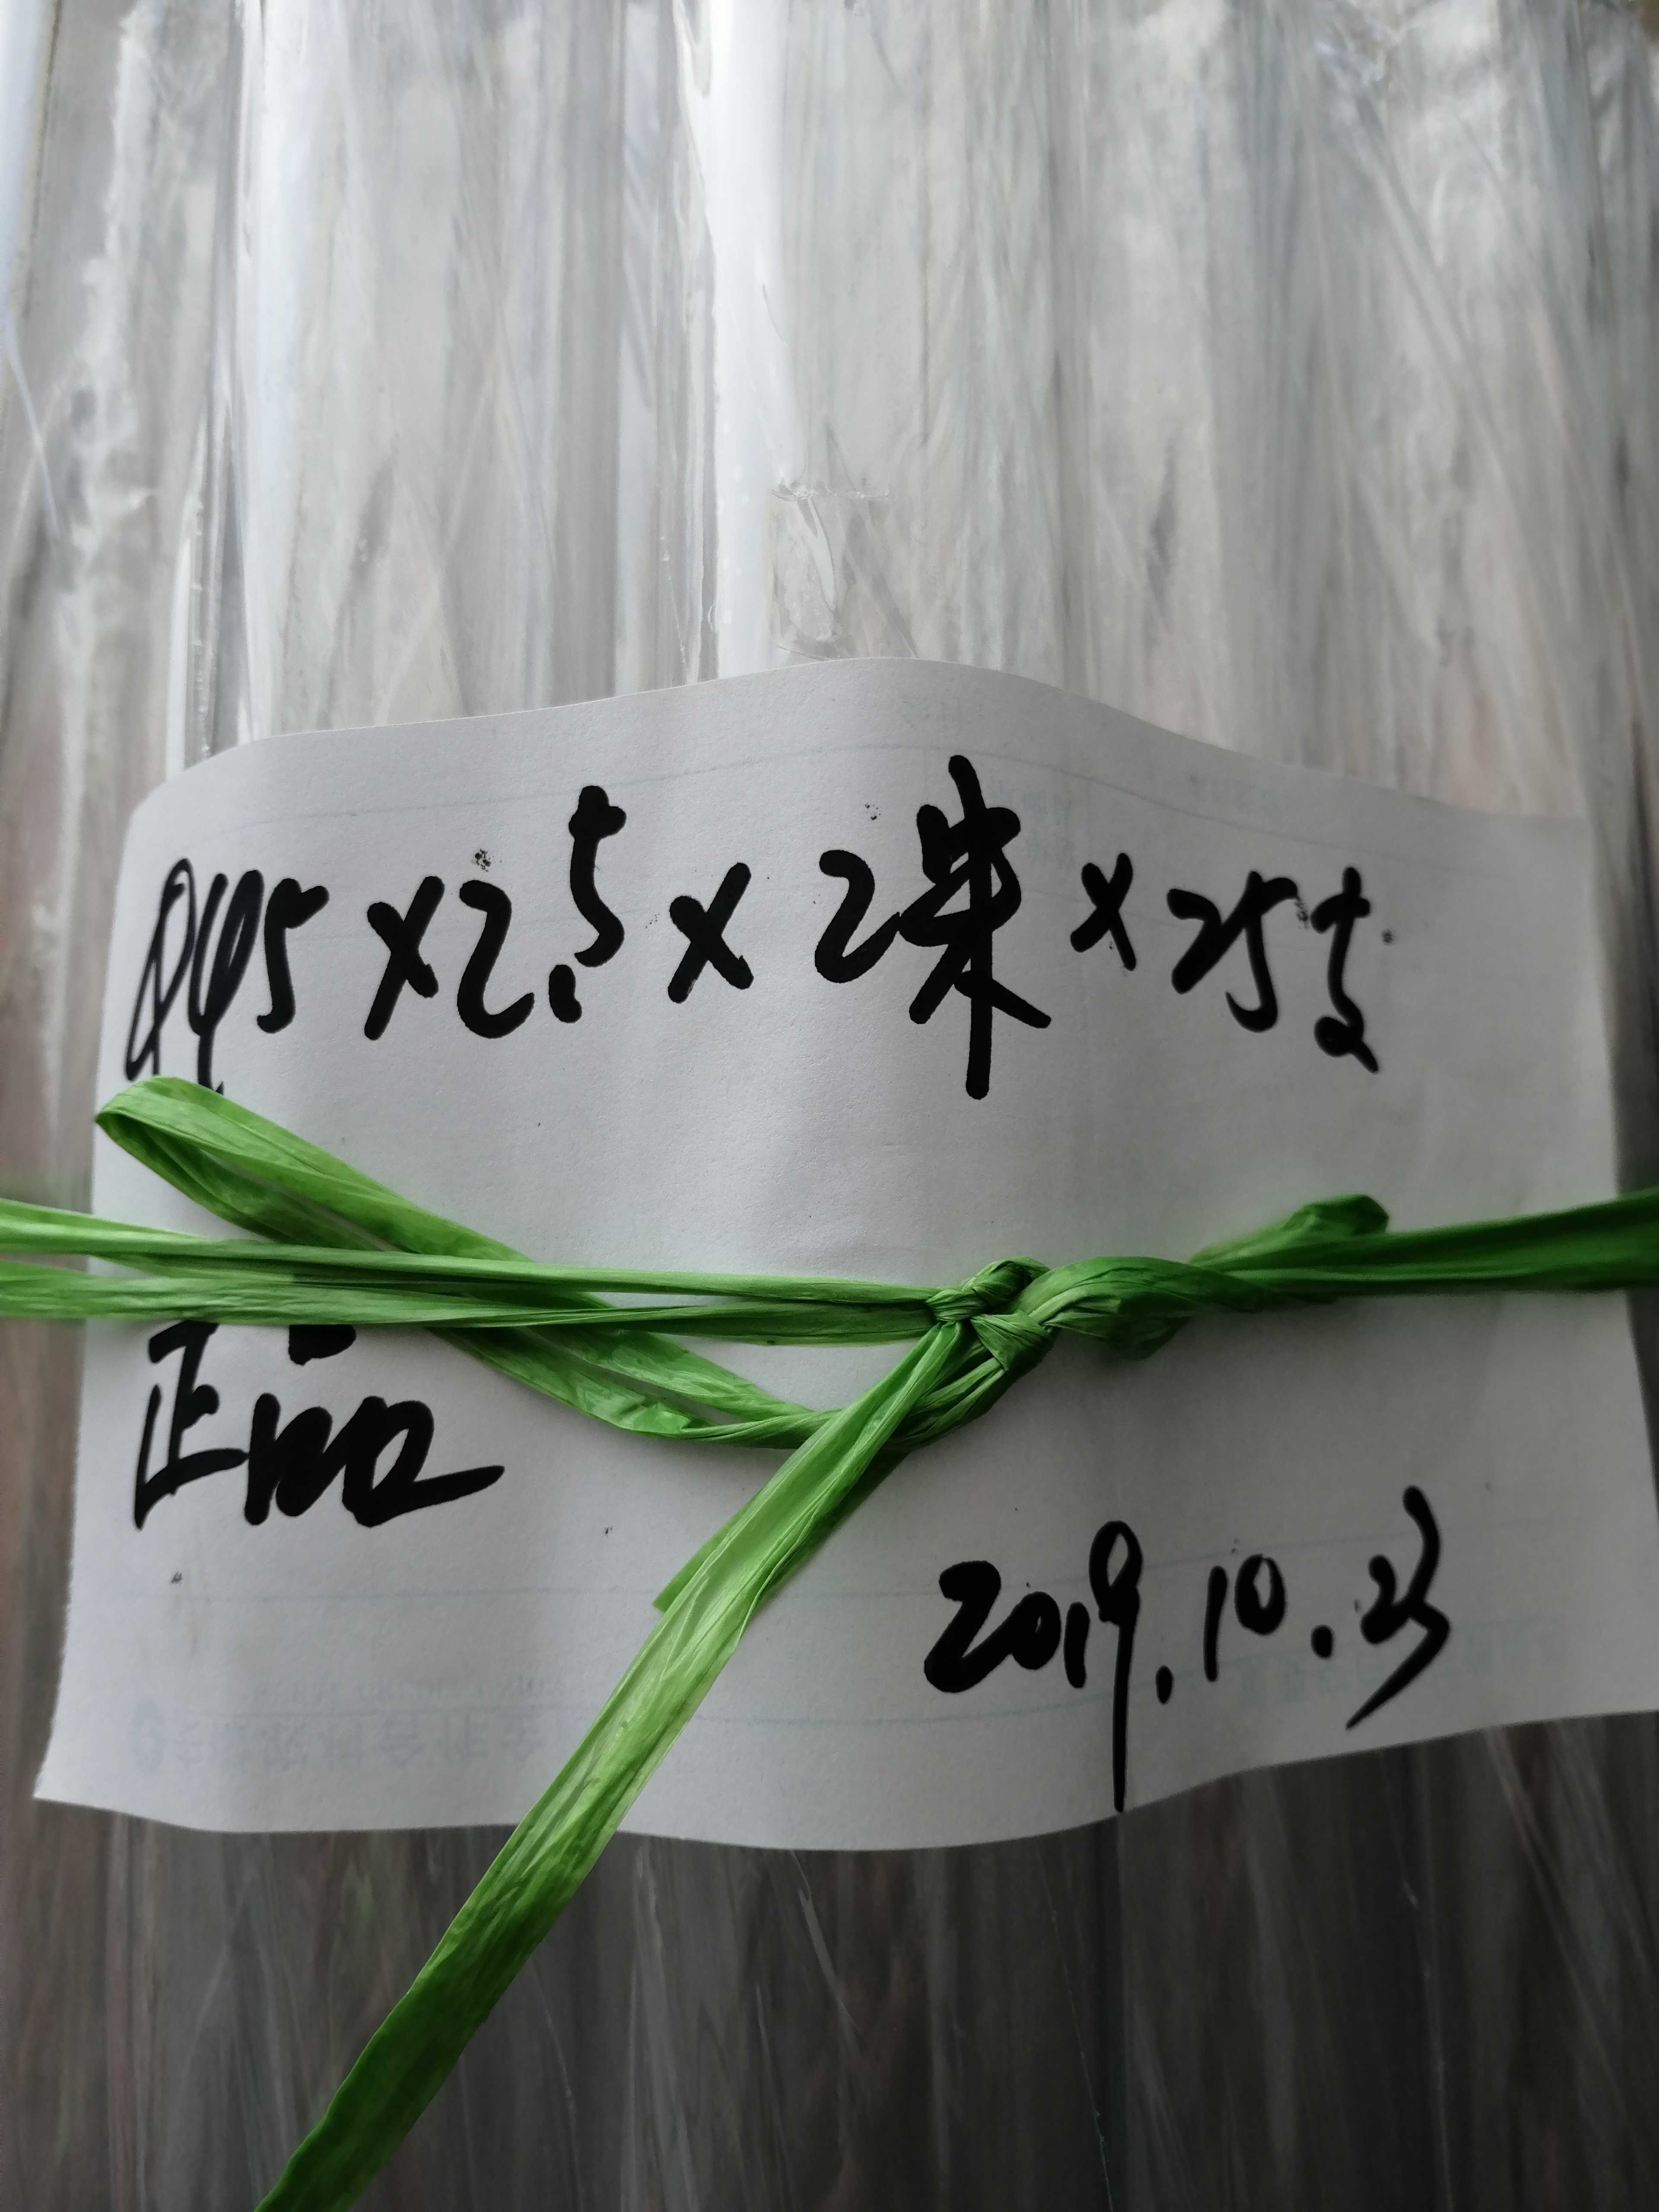 Φ45×2.5×2米×25支
正品
2019.10.23